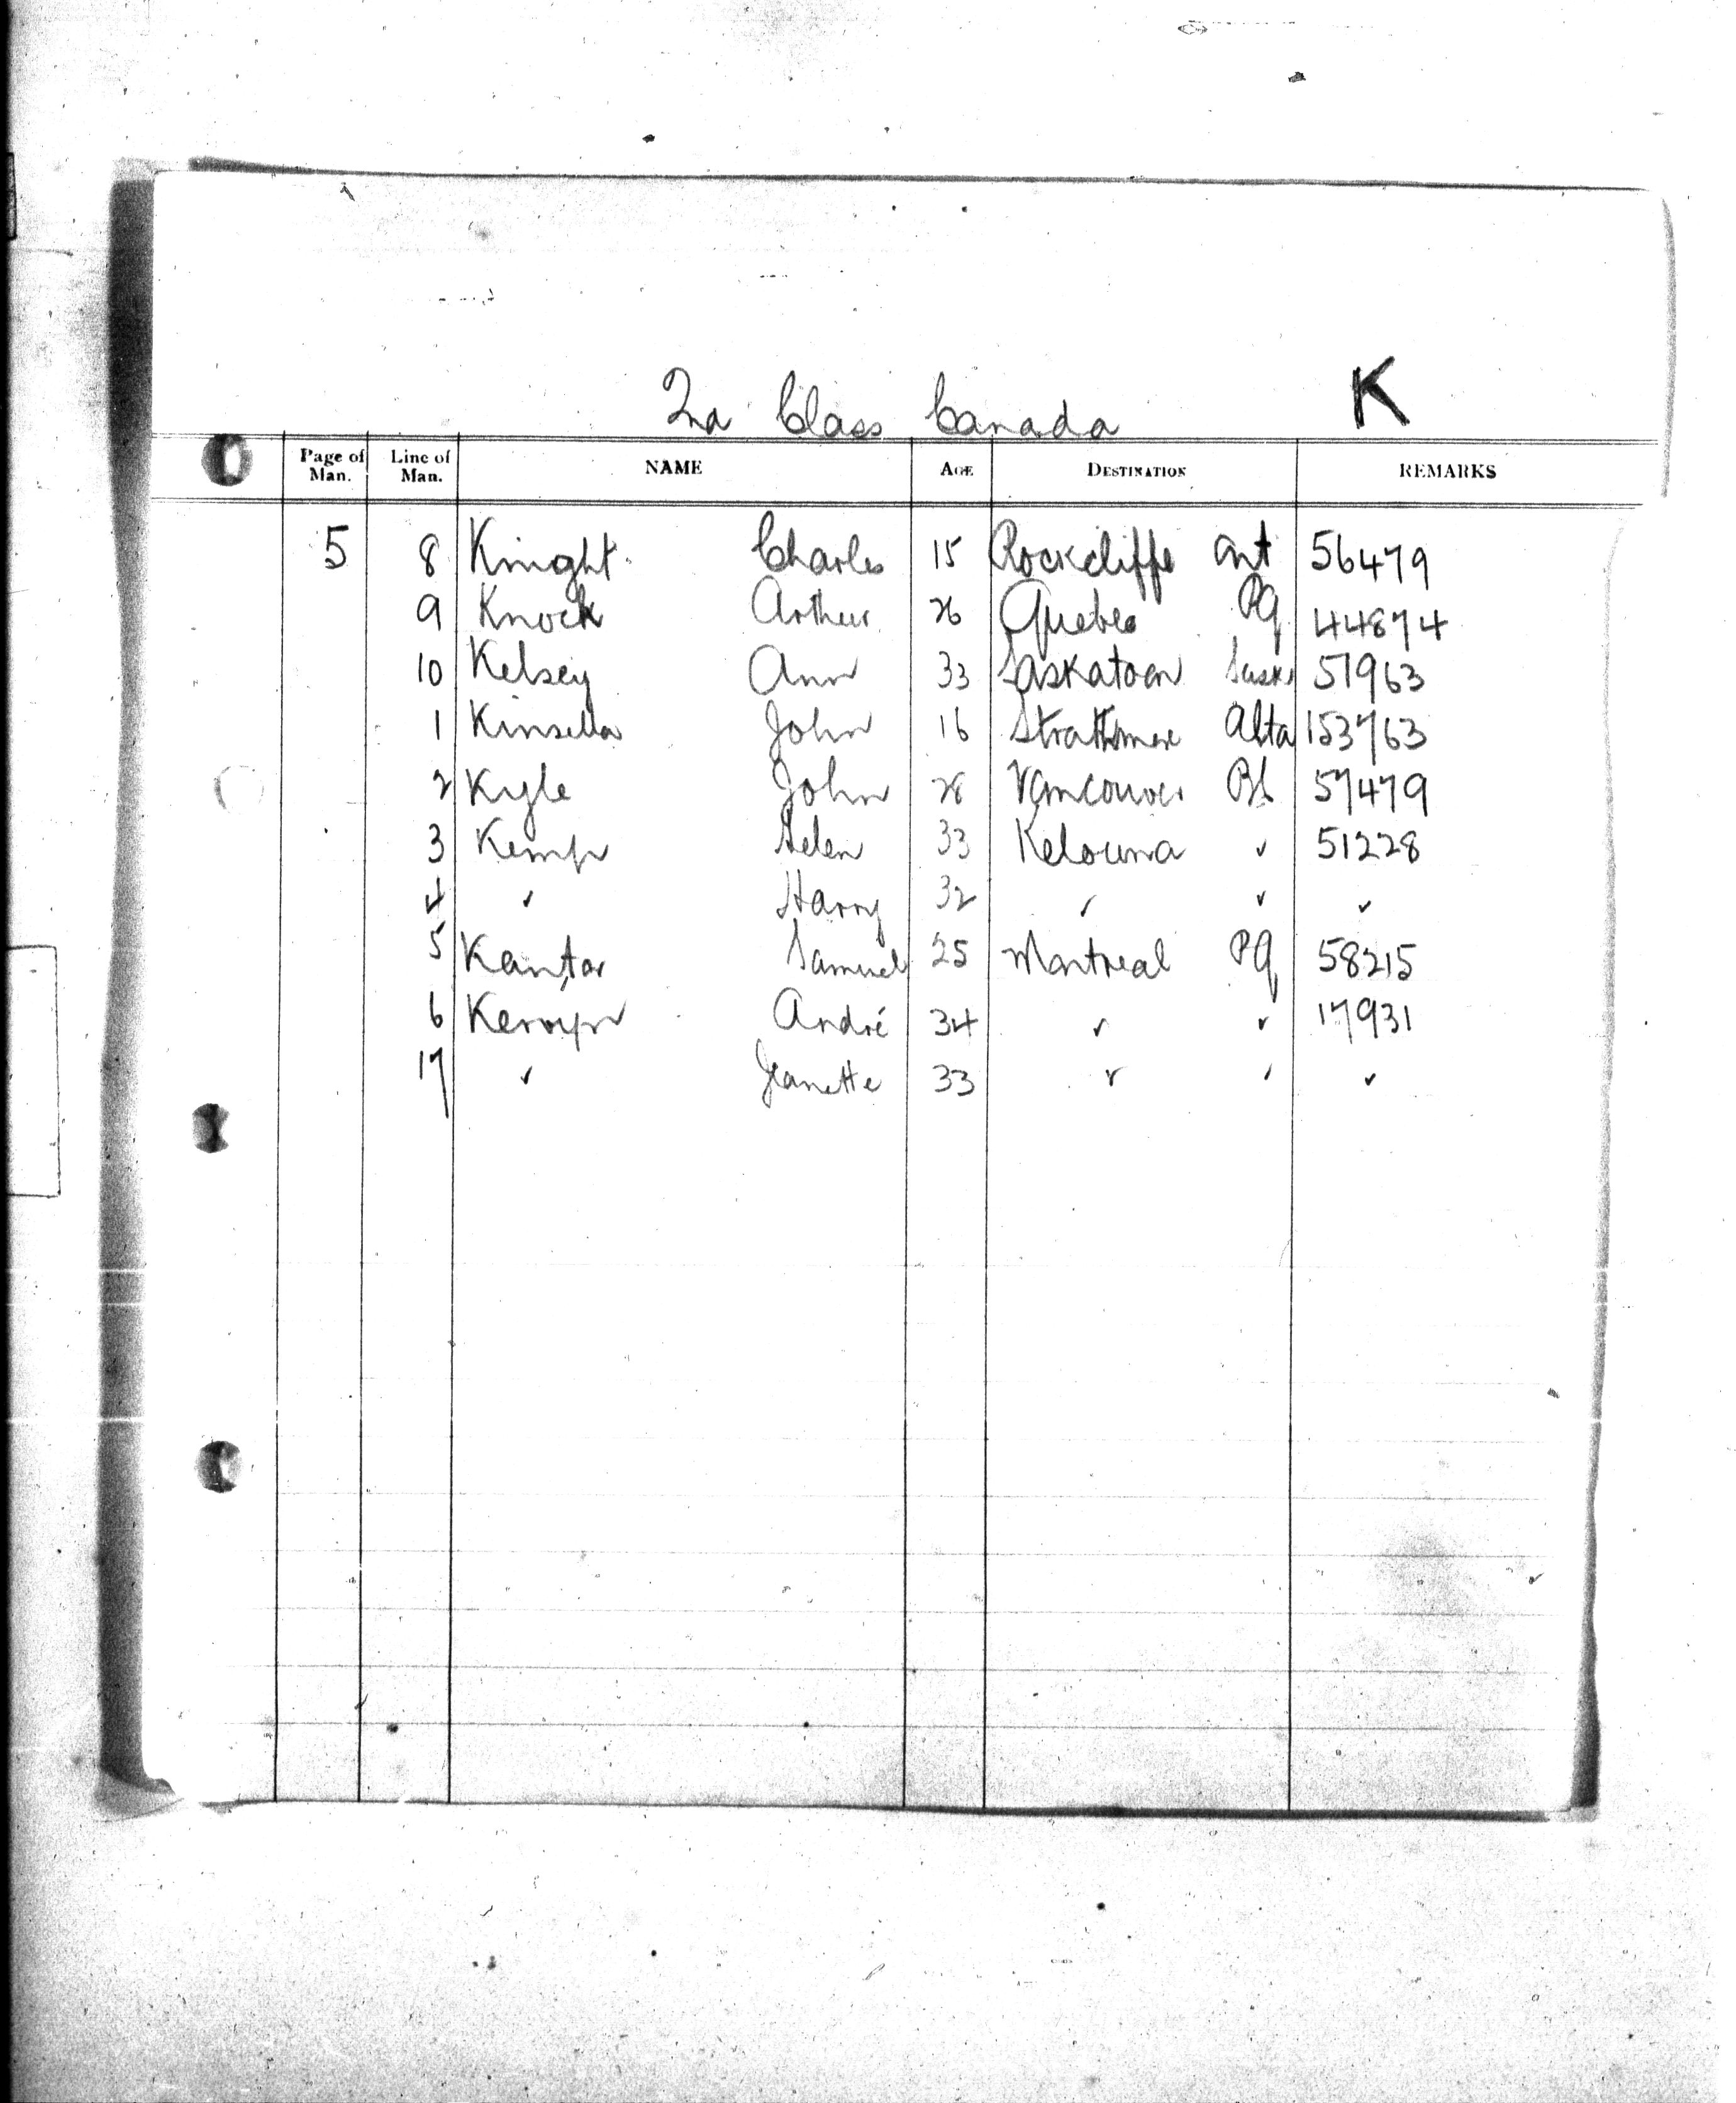 2nd Class Canada K
Page of Man. Line of Man. NAME AGE DESTINATION REMARKS
5 8 Knight Charles 15 Rockcliffe Ont 56479
9 Knock Arthur 26 Quebec PQ 44874
10 Kelsey Ann 33 Saskatoon Sask 57963
1 Kinsella John 16 Strathmore Alta 153763
2 Kyle John 28 Vancouver BC 57479
3 Kemp Helen 33 Kelowna " 51228
4 " Harry 32 " " "
5 Kantor Samuel 25 Montreal PQ 58215
6 Kervyn André 34 " " 17931
17 " Jeanette 33 " " "